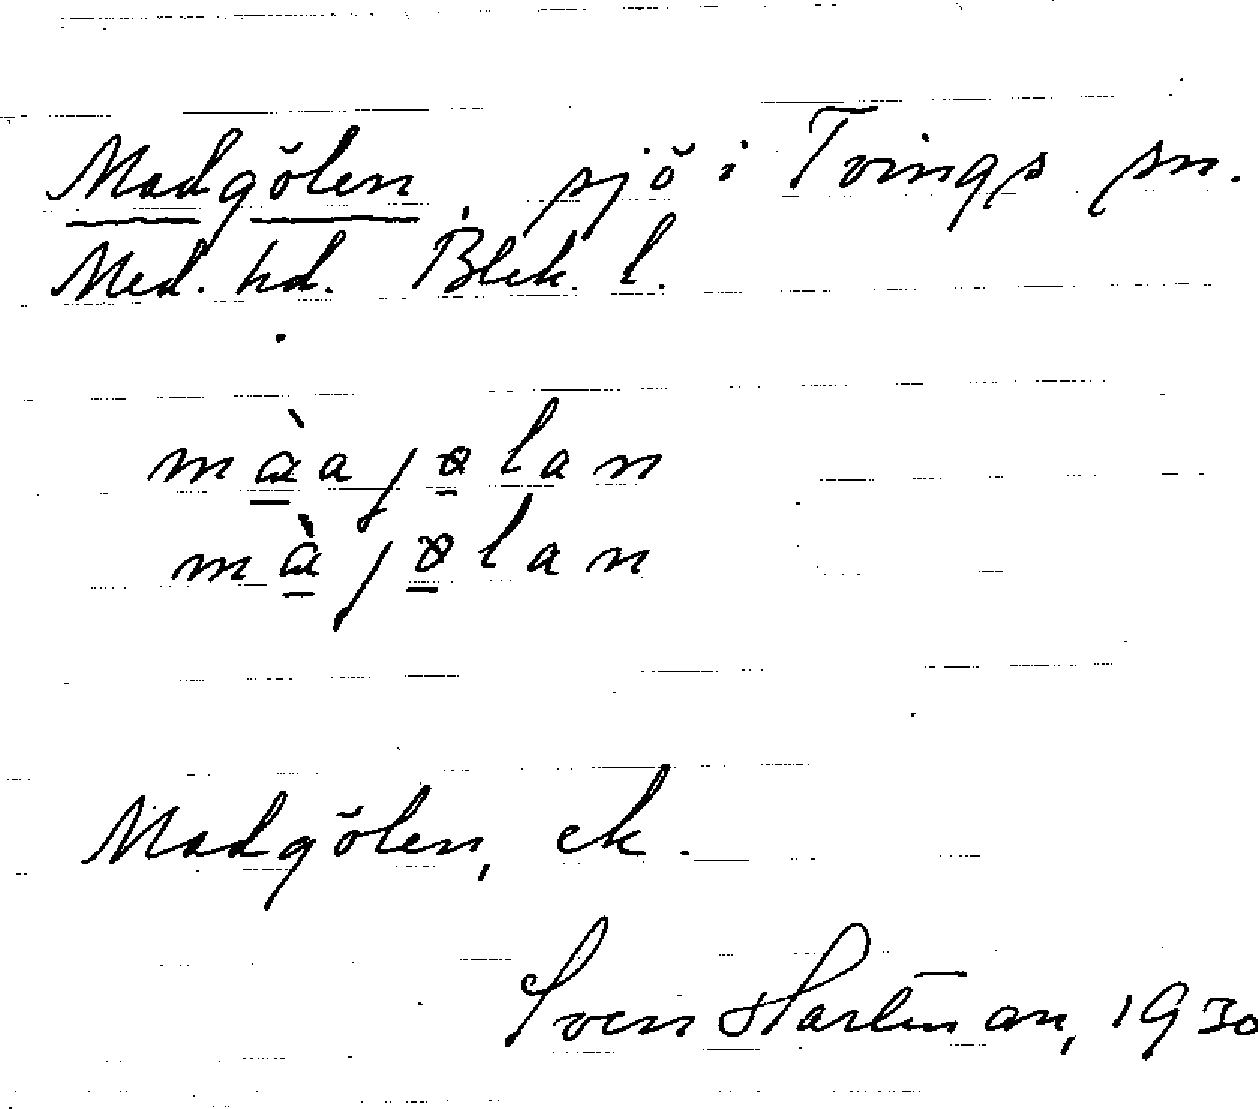 Madgölen, sjö i Tvings sn.
Med. hd. Blek. l.
mɑ̀ajɵlan
mɑ̀jɵlan
Madgölen, ek.
Sven Hartman, 1930